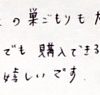 の巣ごもりも
でも購入できる
嬉しいです.